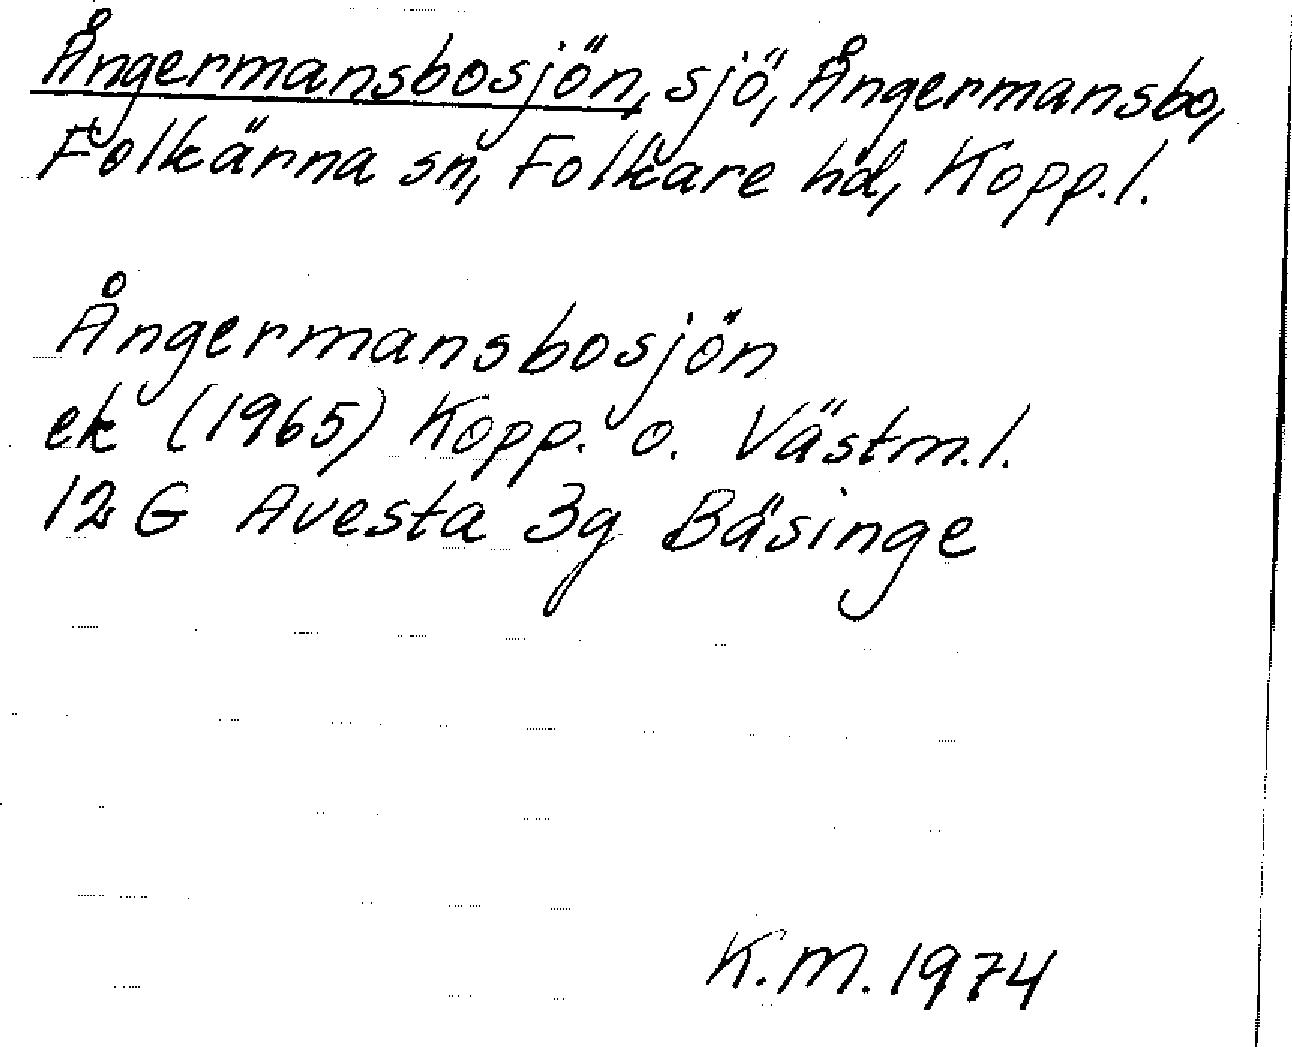 Ångermansbosjön, sjö, Ångermansbo,
Folkärna sn, Folkare hd, Kopp.l.
Ångermansbosjön
ek (1965) Kopp. o. Västm.l.
12 G Avesta 3g Bäsinge
K.M. 1974